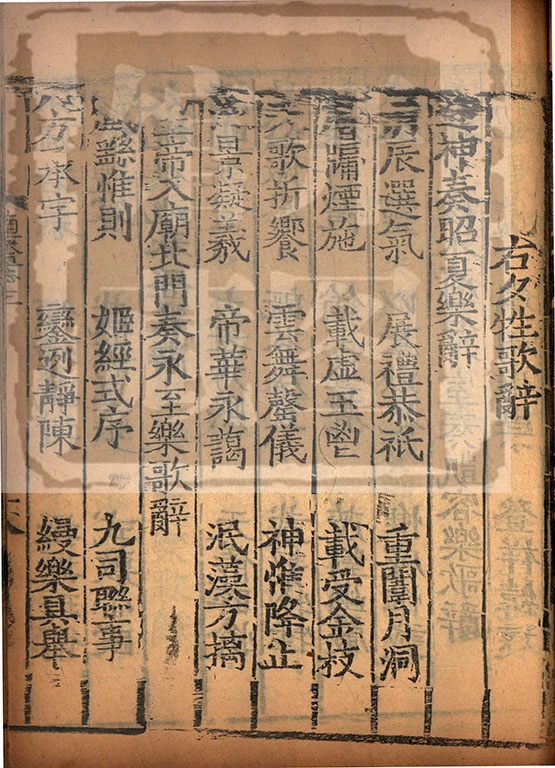 右夕牲歌辭
迎神奏昭夏樂辭
涓辰選氣　展禮恭祗　重闈月洞
層牖煙施　載虛玉鬯　載受金枝
天歌折饗　雲舞罄儀　神惟降止
泛景凝羲　帝華永藹　泯藻方摛
皇帝入廟北門奏永至樂歌辭
戲繇惟則　姬經式序　九司聯事
八方承宇　鑾迾靜陳　縵樂具舉